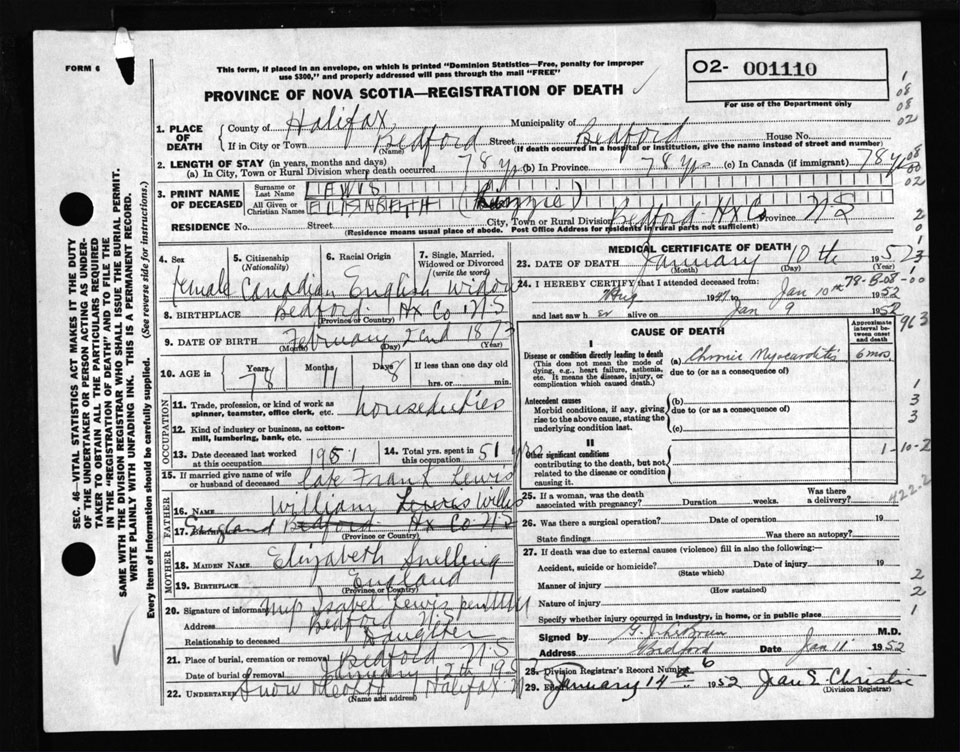 FORM 6
This form, if placed in an envelope, on which is printed "Dominion Statistics—Free, penalty for improper
use $300," and properly addressed will pass through the mail "FREE"
O2- 001110
For use of the Department only
PROVINCE OF NOVA SCOTIA—REGISTRATION OF DEATH
1. PLACE OF DEATH { County of Halifax Municipality of
If in City or Town Bedford (Name) Street Bedford House No.
(If death occurred in a hospital or institution, give the name instead of street and number)
2. LENGTH OF STAY (in years, months and days)
(a) In City, Town or Rural Division where death occurred 78 yrs (b) In Province 78 yrs (c) In Canada (if immigrant) 78 yrs
3. PRINT NAME OF DECEASED { Surname or Last Name LEWIS
All Given or Christian Names ELISABETH
RESIDENCE No. Street City, Town or Rural Division Bedford Hx Co Province NS
(Residence means usual place of abode. Post Office Address for residents in rural parts not sufficient)
4. Sex female
5. Citizenship (Nationality) Canadian
6. Racial Origin English
7. Single, Married, Widowed or Divorced (write the word) Widow
8. BIRTHPLACE Bedford Hx Co NS
(Province or Country)
9. DATE OF BIRTH February 22nd 1873
(Month) (Day) (Year)
10. AGE in { Years 78 Months 11 Days 8 If less than one day old
hrs. or min.
OCCUPATION
11. Trade, profession, or kind of work as spinner, teamster, office clerk, etc. houseduties
12. Kind of industry or business, as cotton-mill, lumbering, bank, etc.
13. Date deceased last worked at this occupation 1951
14. Total yrs. spent in this occupation 51 yrs
15. If married give name of wife or husband of deceased late Frank Lewis
FATHER
16. Name William Lewis Willis
17. Birthplace England Bedford Hx Co NS
(Province or Country)
MOTHER
18. MAIDEN NAME Elizabeth Snelling
19. BIRTHPLACE England
(Province or Country)
20. Signature of informant Mrs Isabel Lewis
Address Bedford NS
Relationship to deceased Daughter
21. Place of burial, cremation or removal Bedford NS
Date of burial or removal January 12th 195
22. Undertaker Snow Halifax N
(Name and address)
MEDICAL CERTIFICATE OF DEATH
23. DATE OF DEATH January 10th 1952
(Month) (Day) (Year)
24. I HEREBY CERTIFY that I attended deceased from:
Aug 1947 to Jan 10th 1952
and last saw her alive on Jan 9 1952
CAUSE OF DEATH
Approximate interval between onset and death
I
Disease or condition directly leading to death
(This does not mean the mode of dying, e.g., heart failure, asthenia, etc. It means the disease, injury, or complication which caused death.)
(a) Chronic Myocarditis 6 mos.
due to (or as a consequence of)
Antecedent causes
Morbid conditions, if any, giving rise to the above cause, stating the underlying condition last.
(b)
due to (or as a consequence of)
(c)
II
Other significant conditions
contributing to the death, but not related to the disease or condition causing it.
25. If a woman, was the death associated with pregnancy? Duration weeks. Was there delivery?
26. Was there a surgical operation? Date of operation 19
State findings Was there an autopsy?
27. If death was due to external causes (violence) fill in also the following:—
Accident, suicide or homicide? Date of injury 19
(State which)
Manner of injury
(How sustained)
Nature of injury
Specify whether injury occurred in industry, in home, or in public place
Signed by M.D.
Address Bedford Date Jan 11 1952
28. Division Registrar's Record Number 6
29. January 14th 1952 Jean S. Christie
(Division Registrar)
SEC. 46—VITAL STATISTICS ACT MAKES IT THE DUTY
OF THE UNDERTAKER OR PERSON ACTING AS UNDER-
TAKER TO OBTAIN ALL THE PARTICULARS REQUIRED
IN THE "REGISTRATION OF DEATH" AND TO FILE THE
SAME WITH THE DIVISION REGISTRAR WHO SHALL ISSUE THE BURIAL PERMIT.
WRITE PLAINLY WITH UNFADING INK. THIS IS A PERMANENT RECORD.
Every item of information should be carefully supplied. (See reverse side for instructions.)